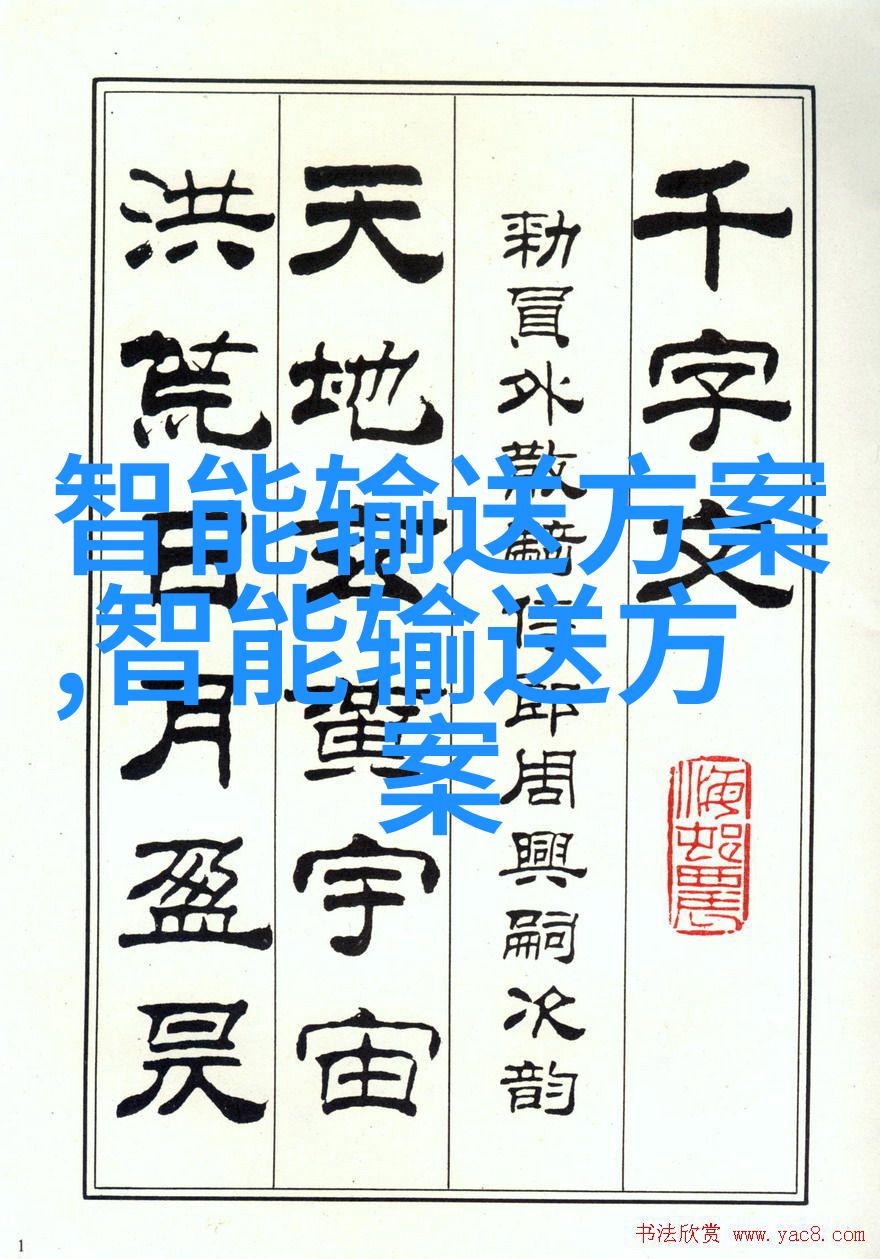 千字文
勑員外散騎侍郎周興嗣次韻
天地玄黃宇宙
洪荒日月盈昃
智能输送方案
,智能输送方
案
1
书法欣赏 www.yac8.com